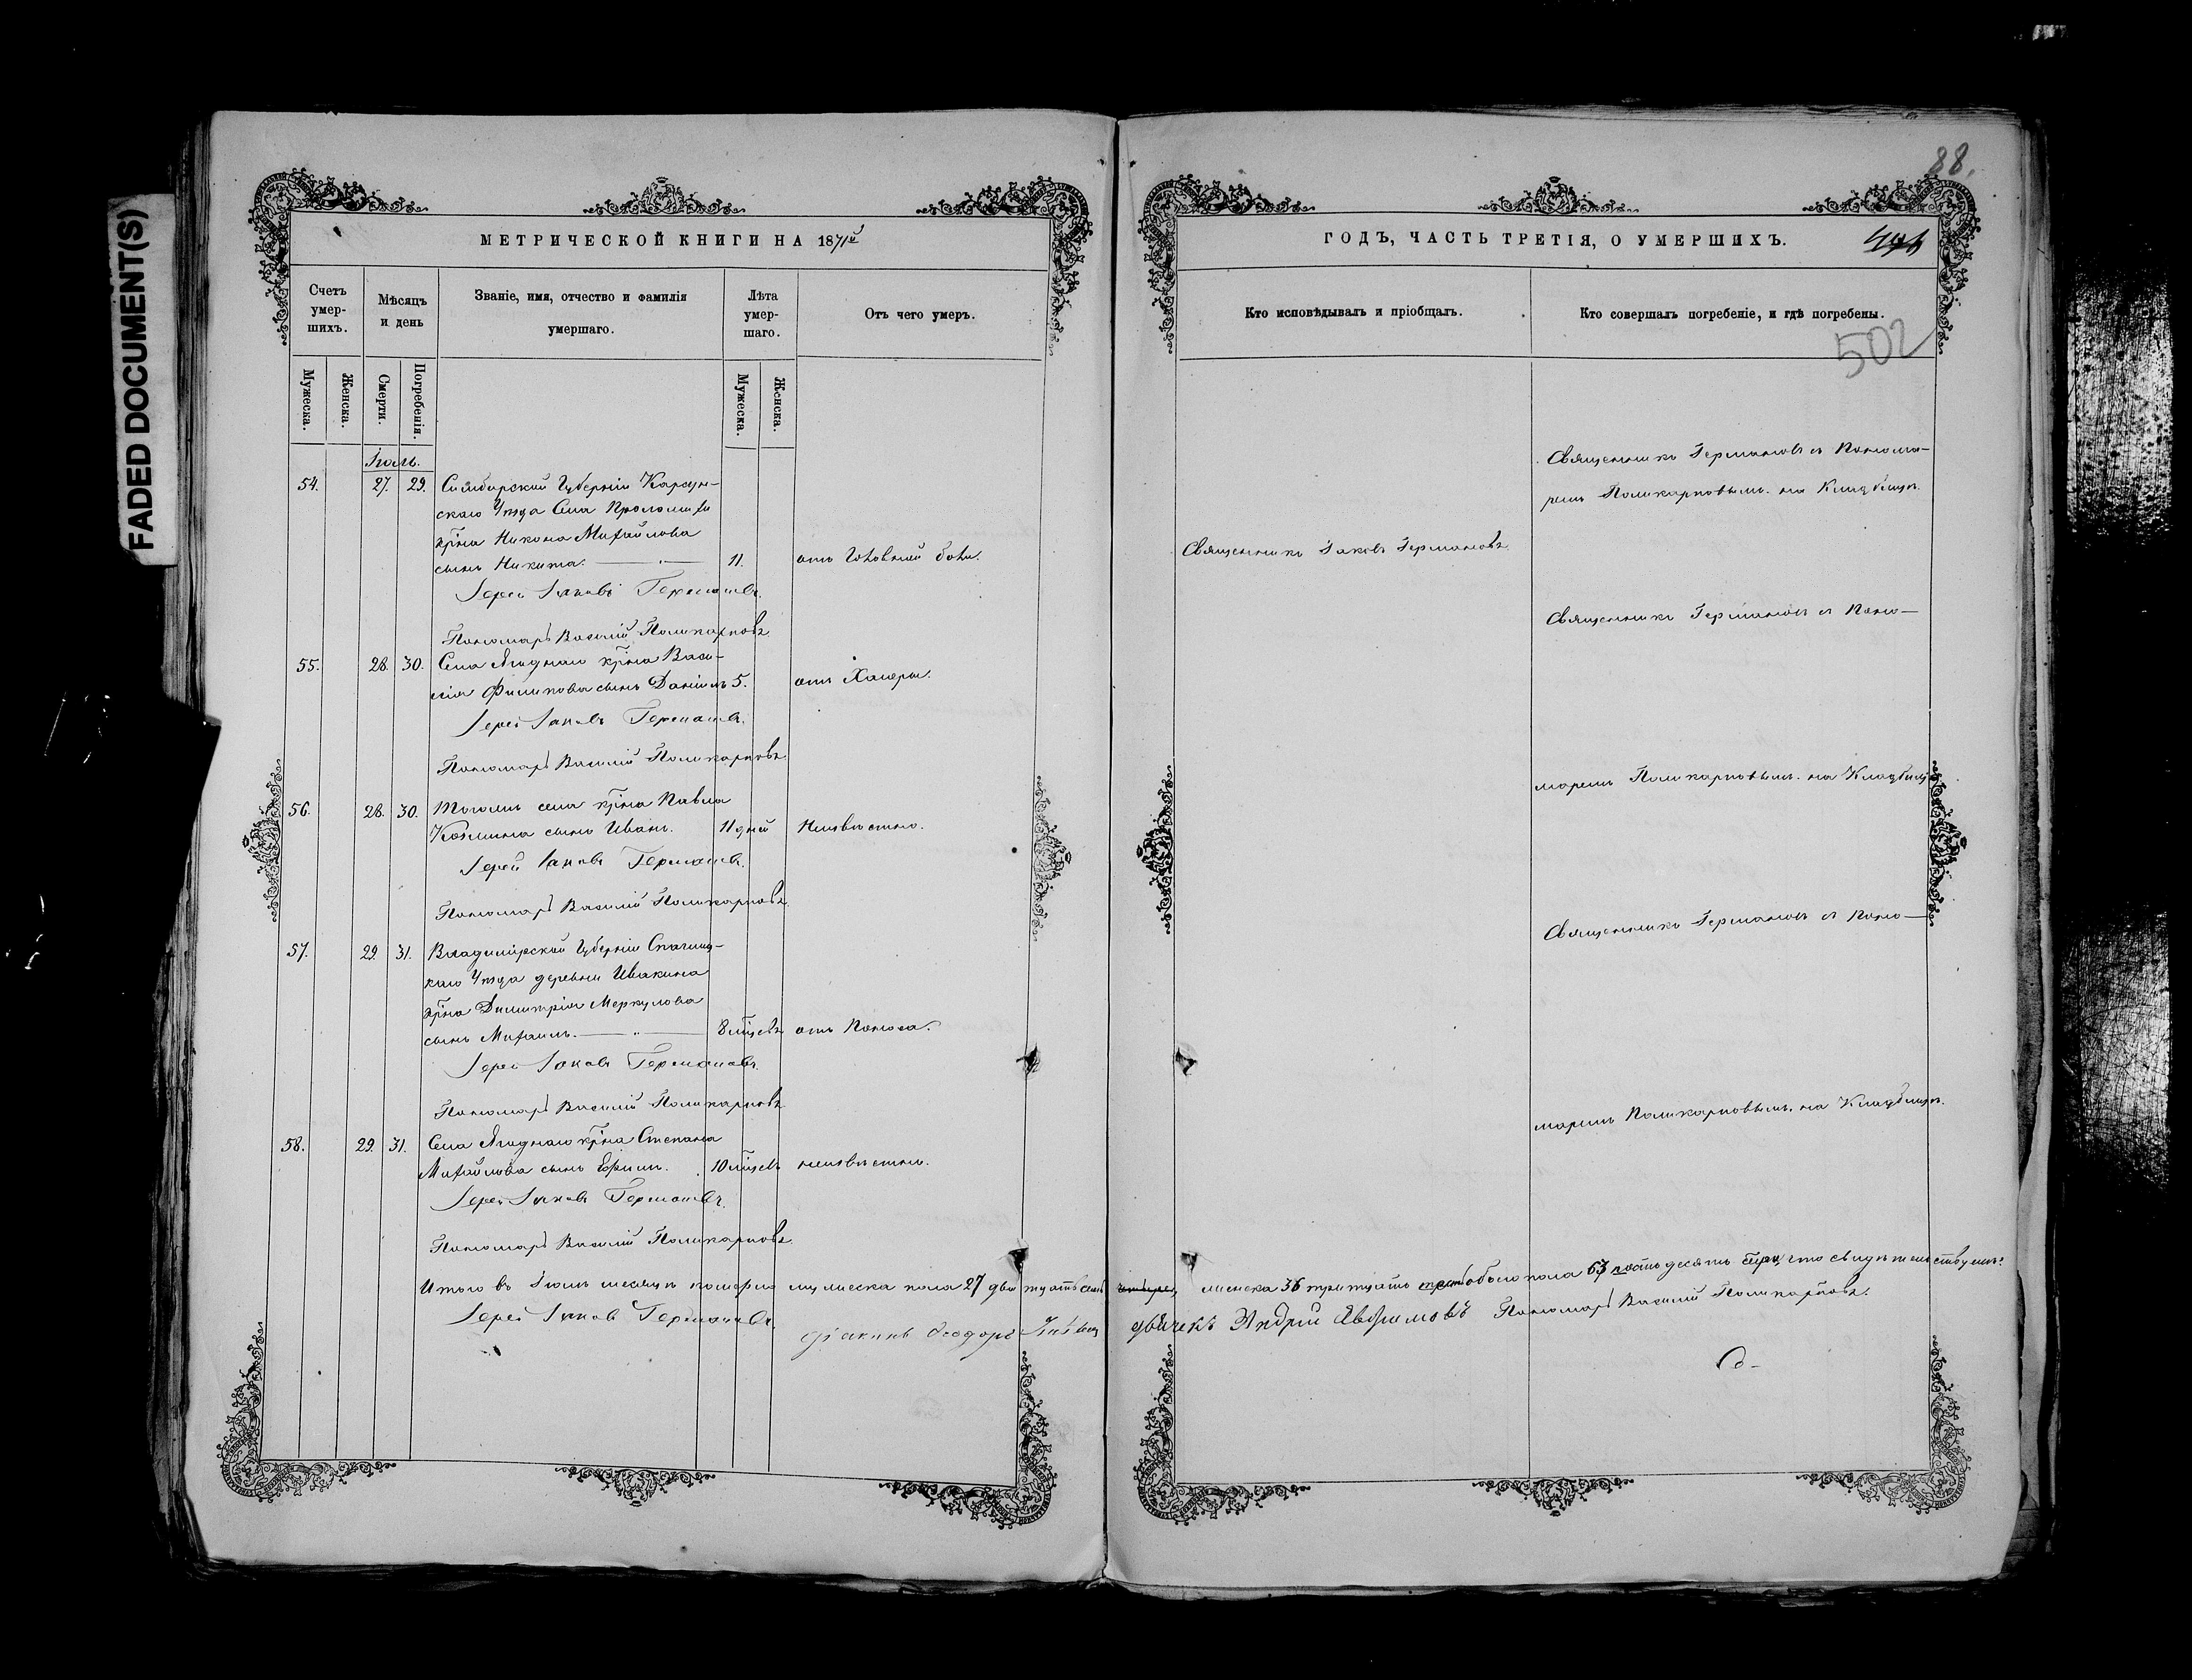 FADED DOCUMENT(S)
МЕТРИЧЕСКОЙ КНИГИ НА 1871й
Счетъ умер-шихъ.
Мѣсяцъ и день
Званіе, имя, отчество и фамилія умершаго.
Лѣта умер-шаго.
Отъ чего умеръ.
Мужеска.
Женска.
Смерти.
Погребенія.
Мужеска.
Женска.
Іюль.
54. 27. 29. Симбирской Губерніи Карсун-
скаго Уѣзда Села Проломихи
кр̃на Никона Михайлова
сынъ Никита. 11. отъ Головной боли.
Іерей Іаковъ Германовъ.
Пономарь Василій Поликарповъ
55. 28. 30. Села Ягоднаго кр̃на Васи-
лія Филипова сынъ Даніилъ 5. отъ Халеры.
Іерей Іаковъ Германовъ.
Пономарь Василій Поликарповъ
56. 28. 30. Тогожъ села кр̃на Павла
Козмина сынъ Иванъ. 11 дней Неизвѣстно.
Іерей Іаковъ Германовъ.
Пономарь Василій Поликарповъ
57. 29. 31. Владимірской Губерніи
Уѣзда деревни Ивакина
кр̃на Димитрія Меркулова
сынъ Михаилъ. 8 мѣсецъ отъ Поноса.
Іерей Іаковъ Германовъ.
Пономарь Василій Поликарповъ
58. 29. 31. Села Ягоднаго кр̃на Степана
Михайлова сынъ Ефимъ. 10 мѣсецъ неизвѣстно.
Іерей Іаковъ Германовъ.
Пономарь Василій Поликарповъ.
Итого въ Іюлѣ месяцѣ померло мужеска пола 27 двадцать семь
Іерей Іаковъ Германовъ. діаконъ Ѳеодоръ
88.
ГОДЪ, ЧАСТЬ ТРЕТІЯ, О УМЕРШИХЪ.
Кто исповѣдывалъ и пріобщалъ.
Кто совершалъ погребеніе, и гдѣ погребены.
502
Священникъ Германовъ съ Понома-
ремъ Поликарповымъ. на Кладбищѣ.
Священникъ Іаковъ Германовъ.
Священникъ Германовъ съ Поно-
маремъ Поликарповымъ. на Кладбищѣ
Священникъ Германовъ съ Поно-
маремъ Поликарповымъ. на Кладбищѣ.
женска 36 тридцать обоего пола 63 что свидѣтельствуемъ:
Андрей Пономарь Василій Поликарповъ.